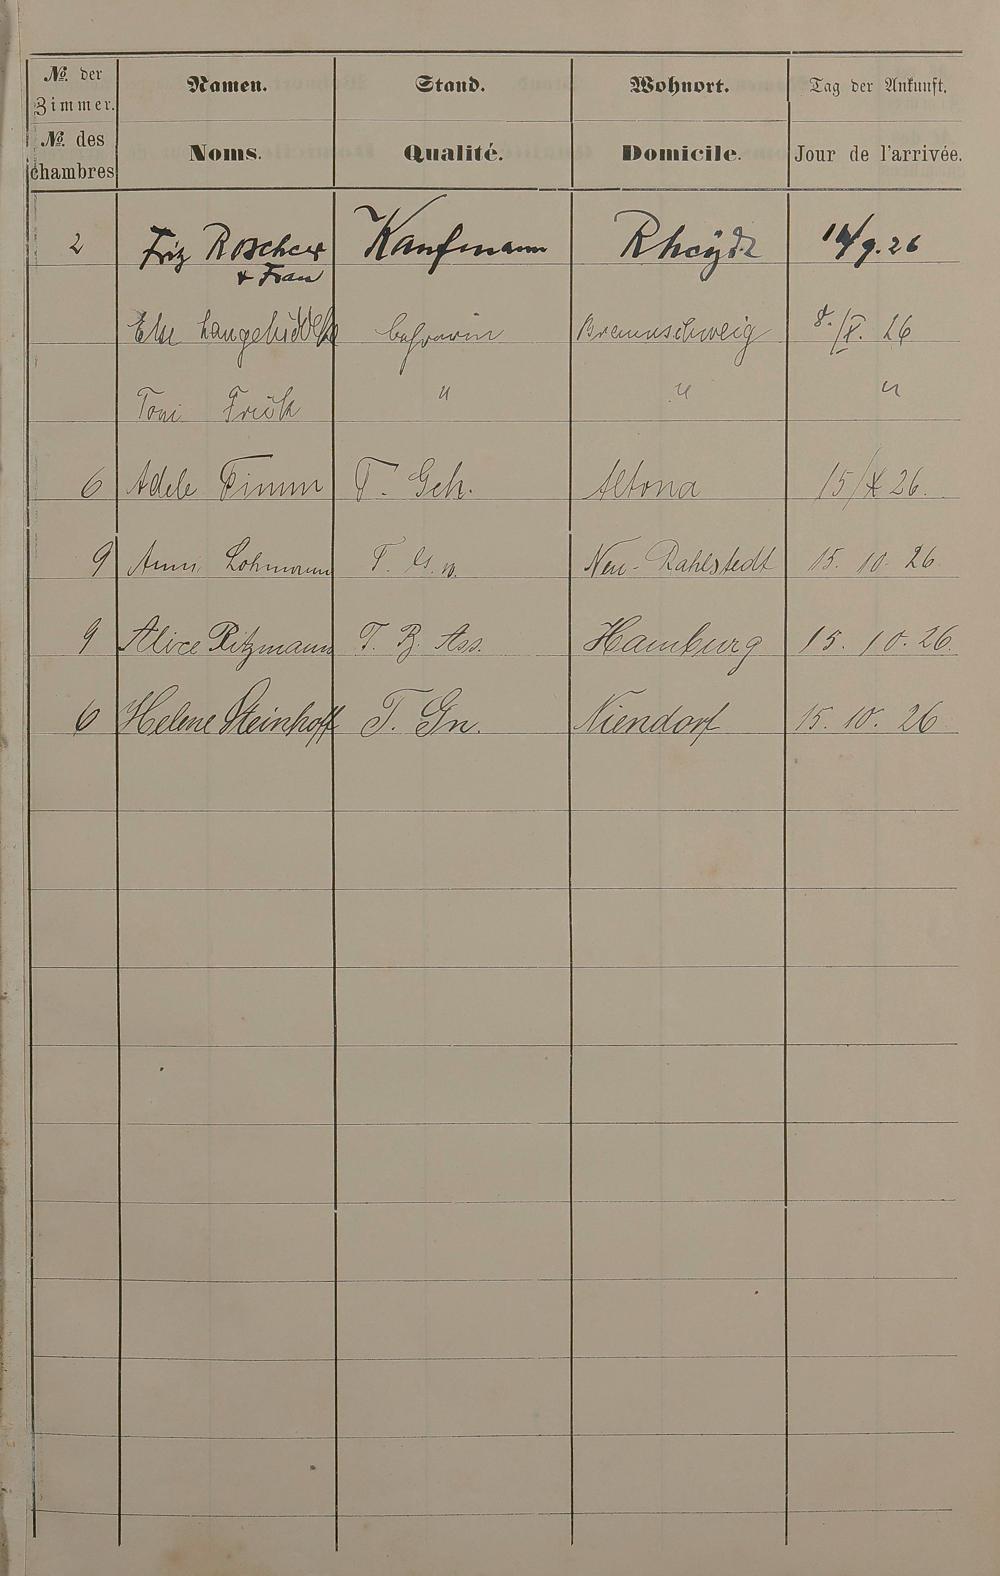 No. der Zimmer. Namen. Stand. Wohnort. Tag der Ankunft.
No. des chambres Noms. Qualité. Domicile. Jour de l'arrivée.
2 Friz Roscher Kaufmann Rheydt 14/9. 26
+ Frau
Else Braunschweig 8./X. 26
Toni Frick " " "
6 Adele Timm T. Geh. Altona 15/X 26.
9 Anni Lohmann T. Neu-Rahlstedt 15. 10. 26
9 Alice Ritzmann T. B. Ass. Hamburg 15. 10. 26.
6 Helene Steinhoff T. Gn. Niendorf 15. 10. 26